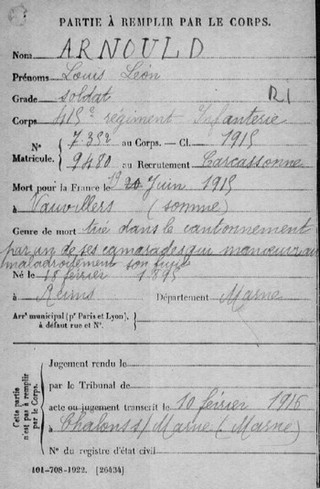 PARTIE À REMPLIR PAR LE CORPS.
Nom ARNOULD
Prénoms Louis Léon
Grade soldat
R1
Corps 415e régiment Infanterie
N° Matricule. 7.352 au Corps. — Cl. 1915
9480 au Recrutement Carcassonne
Mort pour la France le 19 Juin 1915
à Vauvillers (somme)
Genre de mort tué dans le cantonnement
par un de ses camarades qui manœuvrait
maladroitement son fusil
Né le 18 février 1895
à Reims Département Marne
Arrt municipal (pr Paris et Lyon),
à défaut rue et N°.
Cette partie n'est pas à remplir par le Corps.
Jugement rendu le
par le Tribunal de
acte ou jugement transcrit le 10 février 1916
à Chalons s/ Marne (Marne)
N° du registre d'état civil
101-708-1922. [26434]